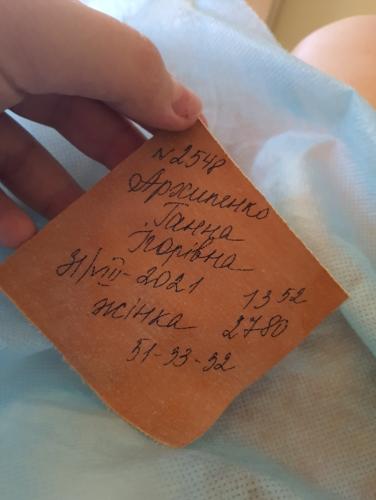 №2548
Архипенко
Ганна
Ігорівна
31/VIII-2021 13 52
жінка 2780
51-33-32